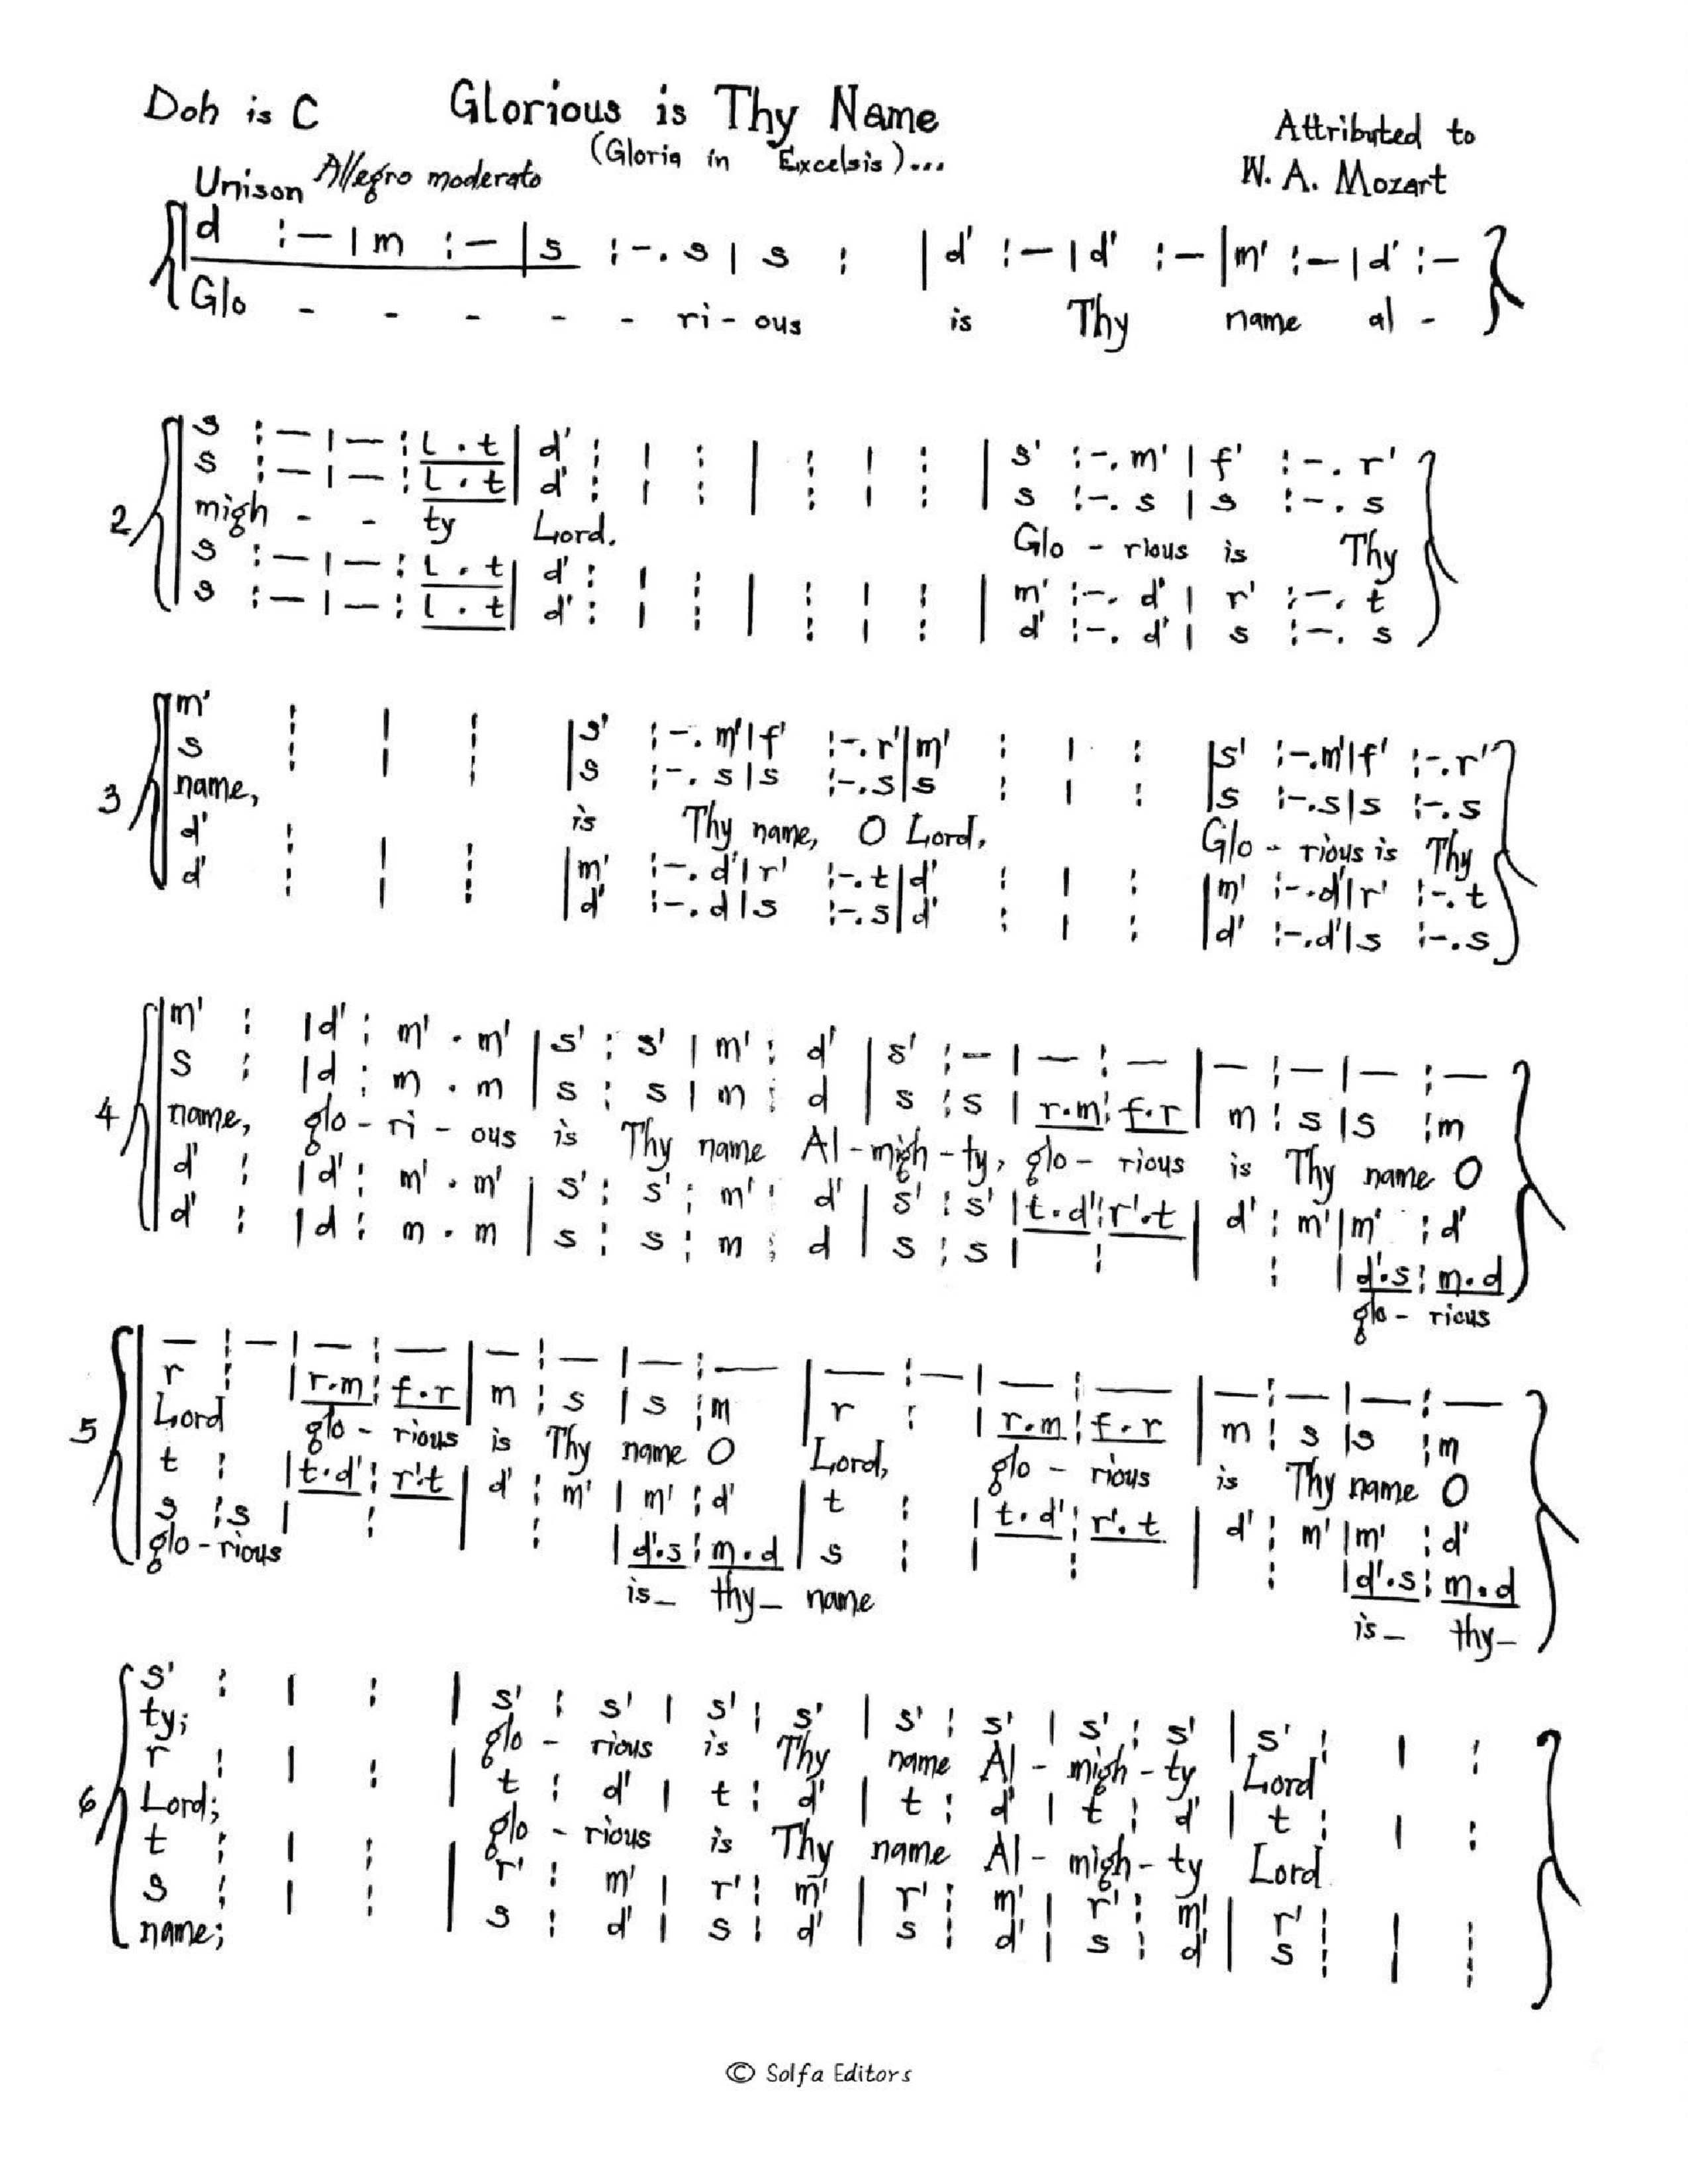 Doh is C Glorious is Thy Name
(Gloria in Excelsis)...
Attributed to
W. A. Mozart
Unison Allegro moderato
d :– | m :– | s :–. s | s : | d' :– | d' :– | m' :– | d' :–
Glo - - - - - ri - ous is Thy name al -
2
s :– | – : l . t | d' : | : | : | : | s' :–. m' | f' :–. r'
s :– | – : l . t | d' : | : | : | : | s :–. s | s :–. s
migh - - ty Lord. Glo - rious is Thy
s :– | – : l . t | d' : | : | : | : | m' :–. d' | r' :–. t
s :– | – : l . t | d' : | : | : | : | d' :–. d' | s :–. s
3
m' : | : | s' :–. m' | f' :–. r' | m' : | : | s' :–. m' | f' :–. r'
s : | : | s :–. s | s :–. s | s : | : | s :–. s | s :–. s
name, is Thy name, O Lord, Glo - rious is Thy
d' : | : | m' :–. d' | r' :–. t | d' : | : | m' :–. d' | r' :–. t
d' : | : | d' :–. d | s :–. s | d' : | : | d' :–. d' | s :–. s
4
m' : | d' : m' . m' | s' : s' | m' : d' | s' :– | – :– | – :– | – :–
s : | d : m . m | s : s | m : d | s : s | r.m : f.r | m : s | s : m
name, glo - ri - ous is Thy name Al - migh - ty, glo - rious is Thy name O
d' : | d' : m' . m' | s' : s' : m' : d' | s' : s' | t.d' : r'.t | d' : m' | m' : d'
d' : | d : m . m | s : s : m : d | s : s | : | : | d'.s : m.d
glo - rious
5
– :– | – :– | – :– | – :– | – :– | – :– | – :– | – :–
r : | r.m : f.r | m : s | s : m | r : | r.m : f.r | m : s | s : m
Lord glo - rious is Thy name O Lord, glo - rious is Thy name O
t : | t.d' : r'.t | d' : m' | m' : d' | t : | t.d' : r'.t | d' : m' | m' : d'
s : s | : | : | d'.s : m.d | s : | : | : | d'.s : m.d
glo - rious is_ thy_ name is_ thy_
6
s' : | : | s' : s' | s' : s' | s' : s' | s' : s' | s' : | :
ty; glo - rious is Thy name Al - migh - ty Lord
r : | : | t : d' | t : d' | t : d' | t : d' | t : | :
Lord; glo - rious is Thy name Al - migh - ty Lord
t : | : | r' : m' | r' : m' | r' : m' | r' : m' | r' : | :
s : | : | s : d' | s : d' | s : d' | s : d' | s : | :
name;
© Solfa Editors